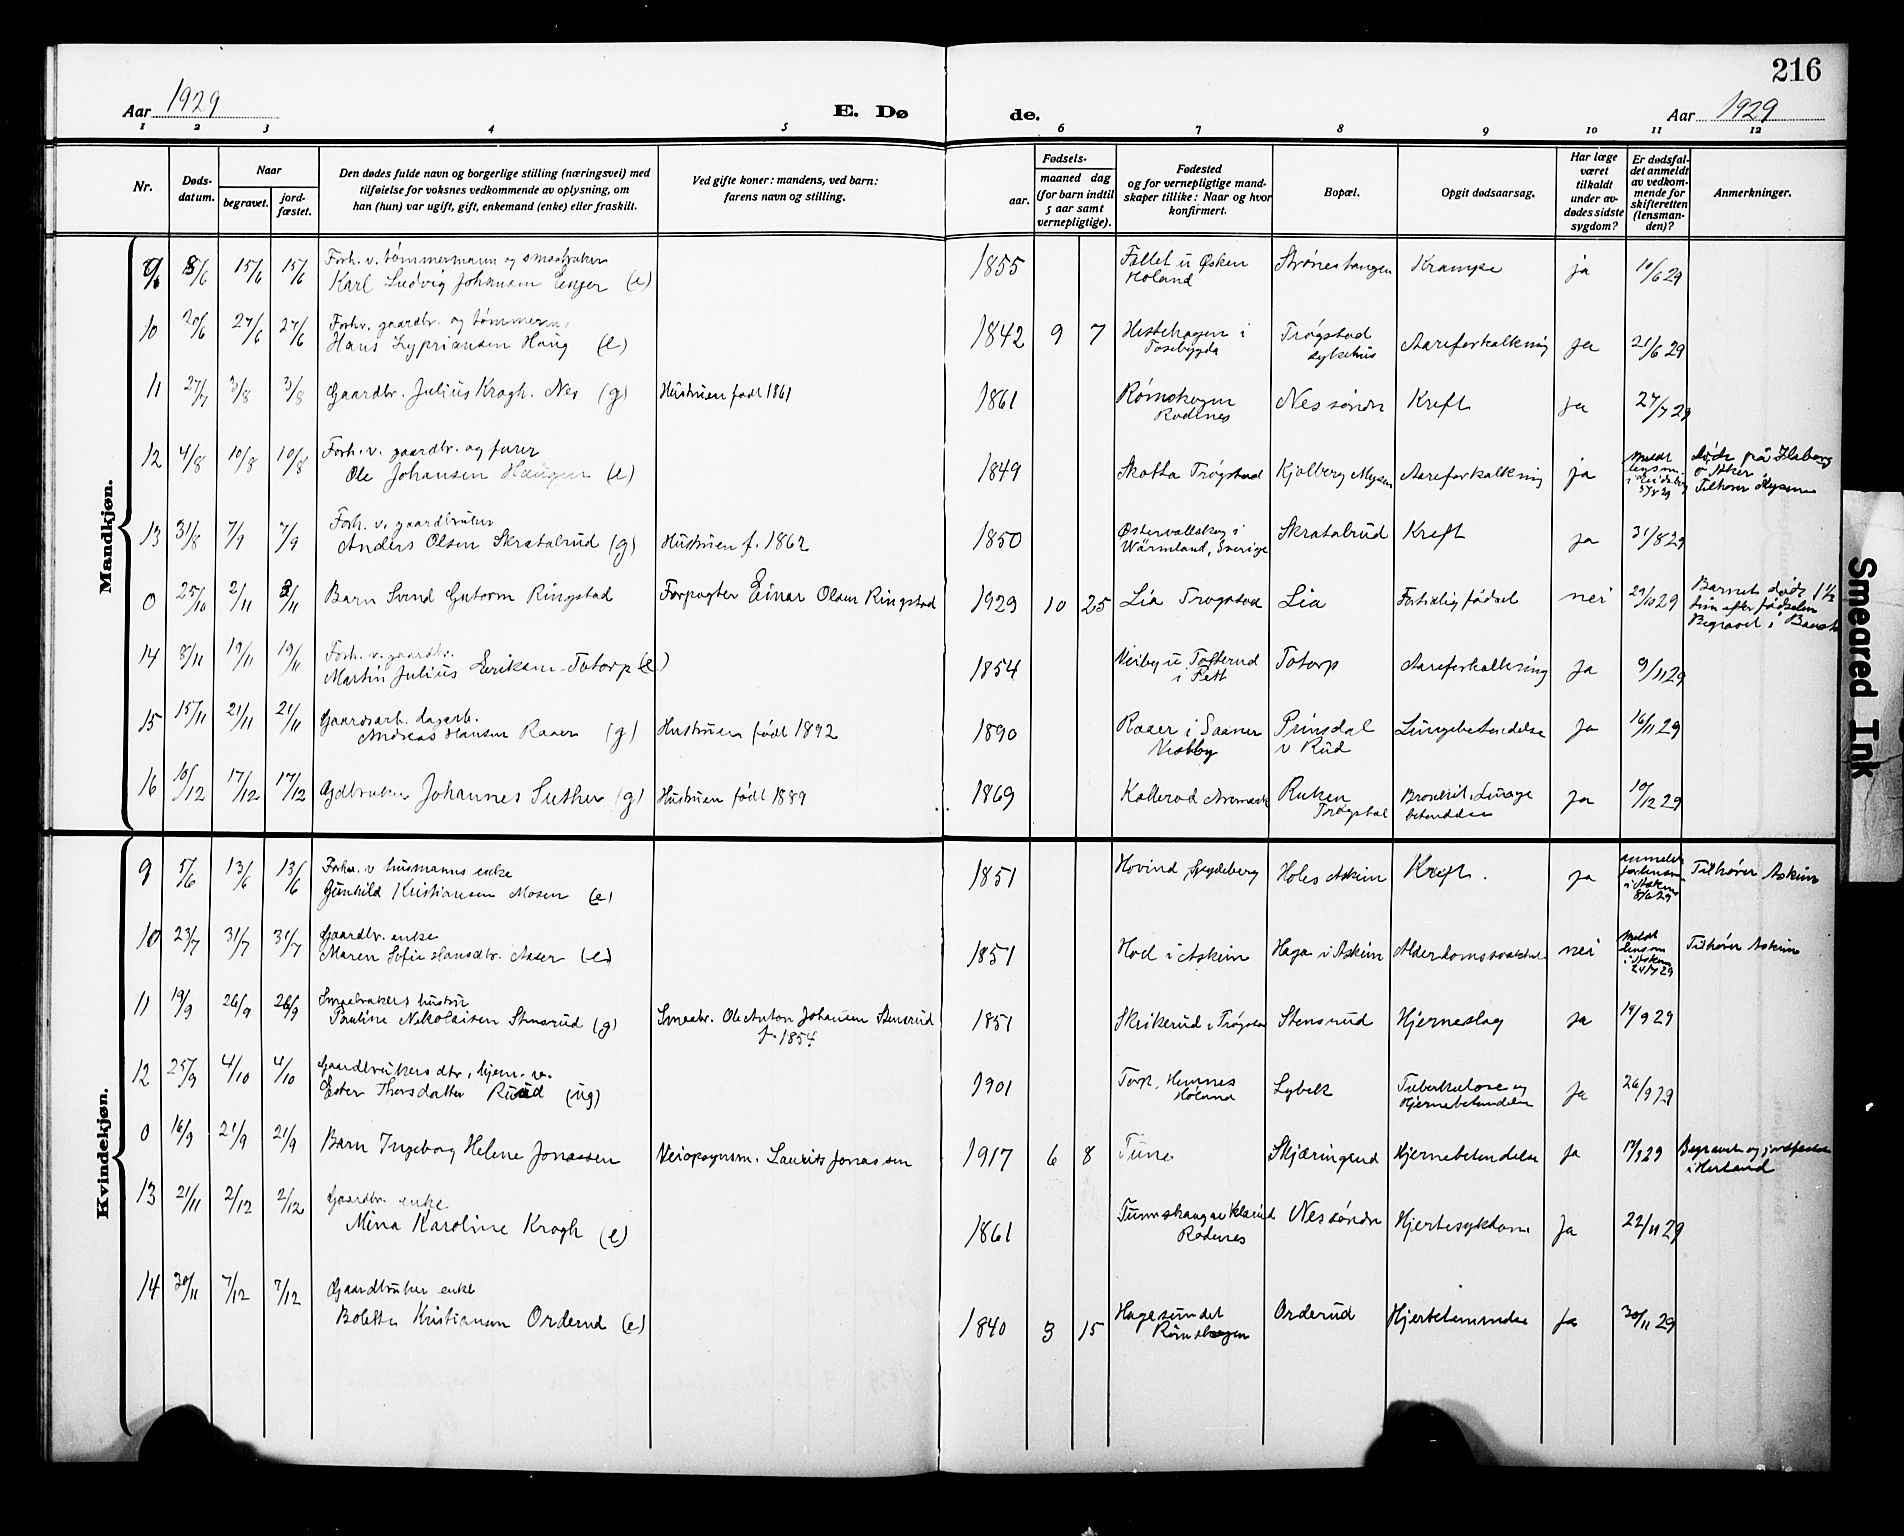 216
Aar 1929
E. Dø
de.
Aar 1929
1 2 3 4 5 6 7 8 9 10 11 12
Nr.
Døds-
datum.
Naar
begravet.
jord-
fæstet.
Den dødes fulde navn og borgerlige stilling (næringsvei) med
tilføielse for voksnes vedkommende av oplysning, om
han (hun) var ugift, gift, enkemand (enke) eller fraskilt.
Ved gifte koner: mandens, ved barn:
farens navn og stilling.
Fødsels-
aar.
maaned dag
(for barn indtil
5 aar samt
vernepligtige).
Fødested
og for vernepligtige mand-
skaper tillike: Naar og hvor
konfirmert.
Bopæl.
Opgit dødsaarsag.
Har læge
været
tilkaldt
under av-
dødes sidste
sygdom?
Er dødsfal-
det anmeldt
av vedkom-
mende for
skifteretten
(lensman-
den)?
Anmerkninger.
Mandkjøn.
9 8/6 15/6 15/6 Forh. v. tømmermann og smaabruker
Karl Ludvig Johansen Enger (e) 1855 Fallet u Øsken
Høland Strønestangen Krampe ja 10/6 29
10 20/6 27/6 27/6 Forhv. gaardbr. og tømmerm.
Hans Zypriansen Haug (e) 1842 9 7 Hestehagen i
Tosebygda Trøgstad
sykehus Aareforkalkning ja 21/6 29
11 27/7 3/8 3/8 Gaardbr. Julius Krogh. Nes (g) Hustruen født 1861 1861 Rømskogen
Rødenes Nes søndr Kreft ja 27/7 29
12 4/8 10/8 10/8 Forh. v. gaardbr. og furer
Ole Johansen Haugen (e) 1849 Skotta Trøgstad Kjølberg Mysen Aareforkalkning ja meldt
lensm.
Døde på
Asker
Tilhører Mysen
13 31/8 7/9 7/9 Forh. v. gaardbruker
Anders Olsen Skratalrud (g) Hustruen f. 1862 1850 Østervallskog i
Wärmland, Sverige Skratalrud Kreft ja 31/8 29
0 25/10 2/11 2/11 Barn Svend Gutorm Ringstad Forpagter Einar Olsen Ringstad 1929 10 25 Lia Trøgstad Lia Fortidlig fødsel nei 29/10 29 Barnet døde 1½
time efter fødselen
Begravet i Baastad
14 8/11 19/11 19/11 Forh. v. gaardbr.
Martin Julius Eriksen Totorp (e) 1854 Veiby u. Tofterud
i Fett Totorp Aareforkalkning ja 9/11 29
15 15/11 21/11 21/11 Gaardsarb. dagarb.
Andreas Hansen Raaer (g) Hustruen født 1892 1890 Raaer i Saaner
Vestby Prinsdal
v Rud Lungebetendelse ja 16/11 29
16 10/12 17/12 17/12 Gdbruker Johannes Suther (g) Hustruen født 1889 1869 Kollerød Aremark Ruken
Trøgstad Bronkit. Lunge
betendelse ja 10/12 29
Kvindekjøn.
9 5/6 13/6 13/6 Forhv. v husmanns enke
Gunhild Kristiansen Mosen (e) 1851 Hovind, Spydeberg Holes Askim Kreft. ja anmeldt
for lensm
i Askim
8/6 29 Tilhører Askim
10 23/7 31/7 31/7 Gaardbr. enke
Maren Sofie Hansdtr. Aaser (e) 1851 Hol i Askim Haga i Askim Alderdomssvakhet nei meldt
lensm
i Askim
24/7 29 Tilhører Askim
11 19/9 26/9 26/9 Smaabrukers hustru
Pauline Nikolaisen Stensrud (g) Smaabr. Ole Anton Johansen Stensrud
f. 1854 1851 Skrikerud i Trøgstad Stensrud Hjerneslag ja 19/9 29
12 25/9 4/10 4/10 Gaardbrukers dtr., hjem. v.
Ester Thorsdatter Ruud (ug) 1901 Torp, Hemnes
Høland Lybekk Tuberkulose og
Hjernebetendelse ja 26/9 29
0 16/9 21/9 21/9 Barn Ingeborg Helene Jonassen Veiopsynsm. Laurits Jonassen 1917 6 8 Tune Skjæringrud Hjernebetendelse ja 17/9 29 Begravet og jordfestet
i Herland
13 21/11 2/12 2/12 Gaardbr. enke
Mina Karoline Krogh (e) 1861
Rødenes Nes søndr Hjertesykdom ja 22/11 29
14 30/11 7/12 7/12 Gaardbruker enke
Bolette Kristiansen Orderud (e) 1840 3 15 Hagesundet
Rømskogen Orderud Hjertelammelse ja 30/11 29
Smeared Ink